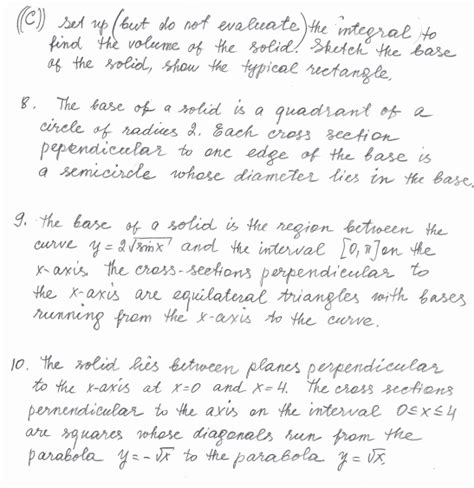 ((C)) set up (but do not evaluate) the integral to
find the volume of the solid. Sketch the base
of the solid, show the typical rectangle.
8. The base of a solid is a quadrant of a
circle of radius 2. Each cross section
pependicular to one edge of the base is
a semicircle whose diameter lies in the base.
9. The base of a solid is the region between the
curve y = 2√sinx and the interval [0, π] on the
x-axis the cross-sections perpendicular to
the x-axis are equilateral triangles with bases
running from the x-axis to the curve.
10. The solid lies between planes perpendicular
to the x-axis at x=0 and x=4. The cross sections
pernendicular to the axis on the interval 0≤x≤4
are squares whose diagonals run from the
parabola y=-√x to the parabola y=√x.